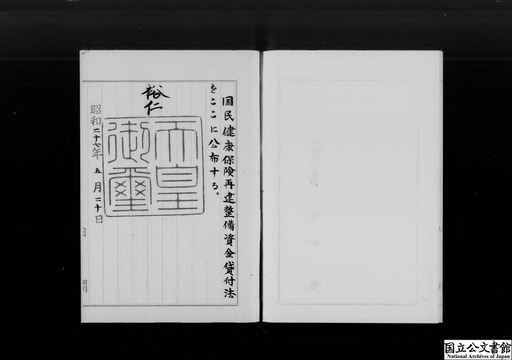 国民健康保険再建整備資金貸付法
をここに公布する。
裕仁
天皇
御璽
昭和二十七年 五月二十日
国立公文書館
National Archives of Japan